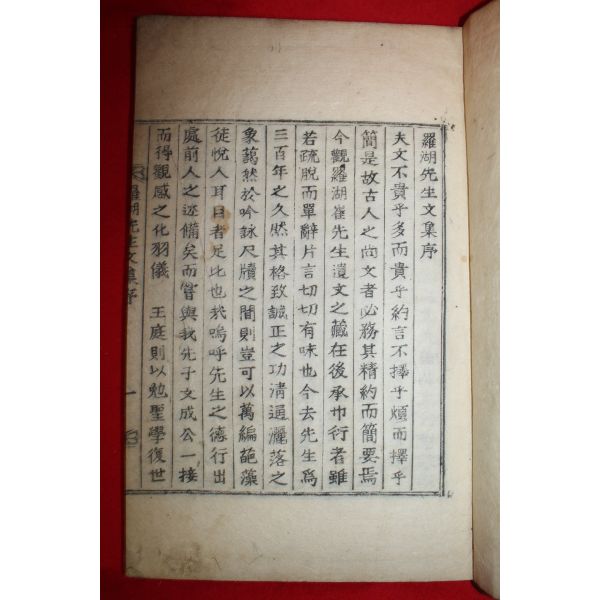 羅湖先生文集序
夫文不貴乎多而貴乎約言不擇乎煩而擇乎
簡是故古人之尙文者必務其精約而簡要焉
今觀羅湖崔先生遺文之藏在後承巾衍者雖
若疏脫而單辭片言切切有味也今去先生爲
三百年之久然其格致誠正之功淸通灑落之
象藹然於吟詠尺牘之間則豈可以萬編葩藻
徒悅人耳目者足比也哉嗚呼先生之德行出
處前人之述備矣而嘗與我先子文成公一接
而得觀感之化羽儀 王庭則以勉聖學復世
羅湖先生文集序 一